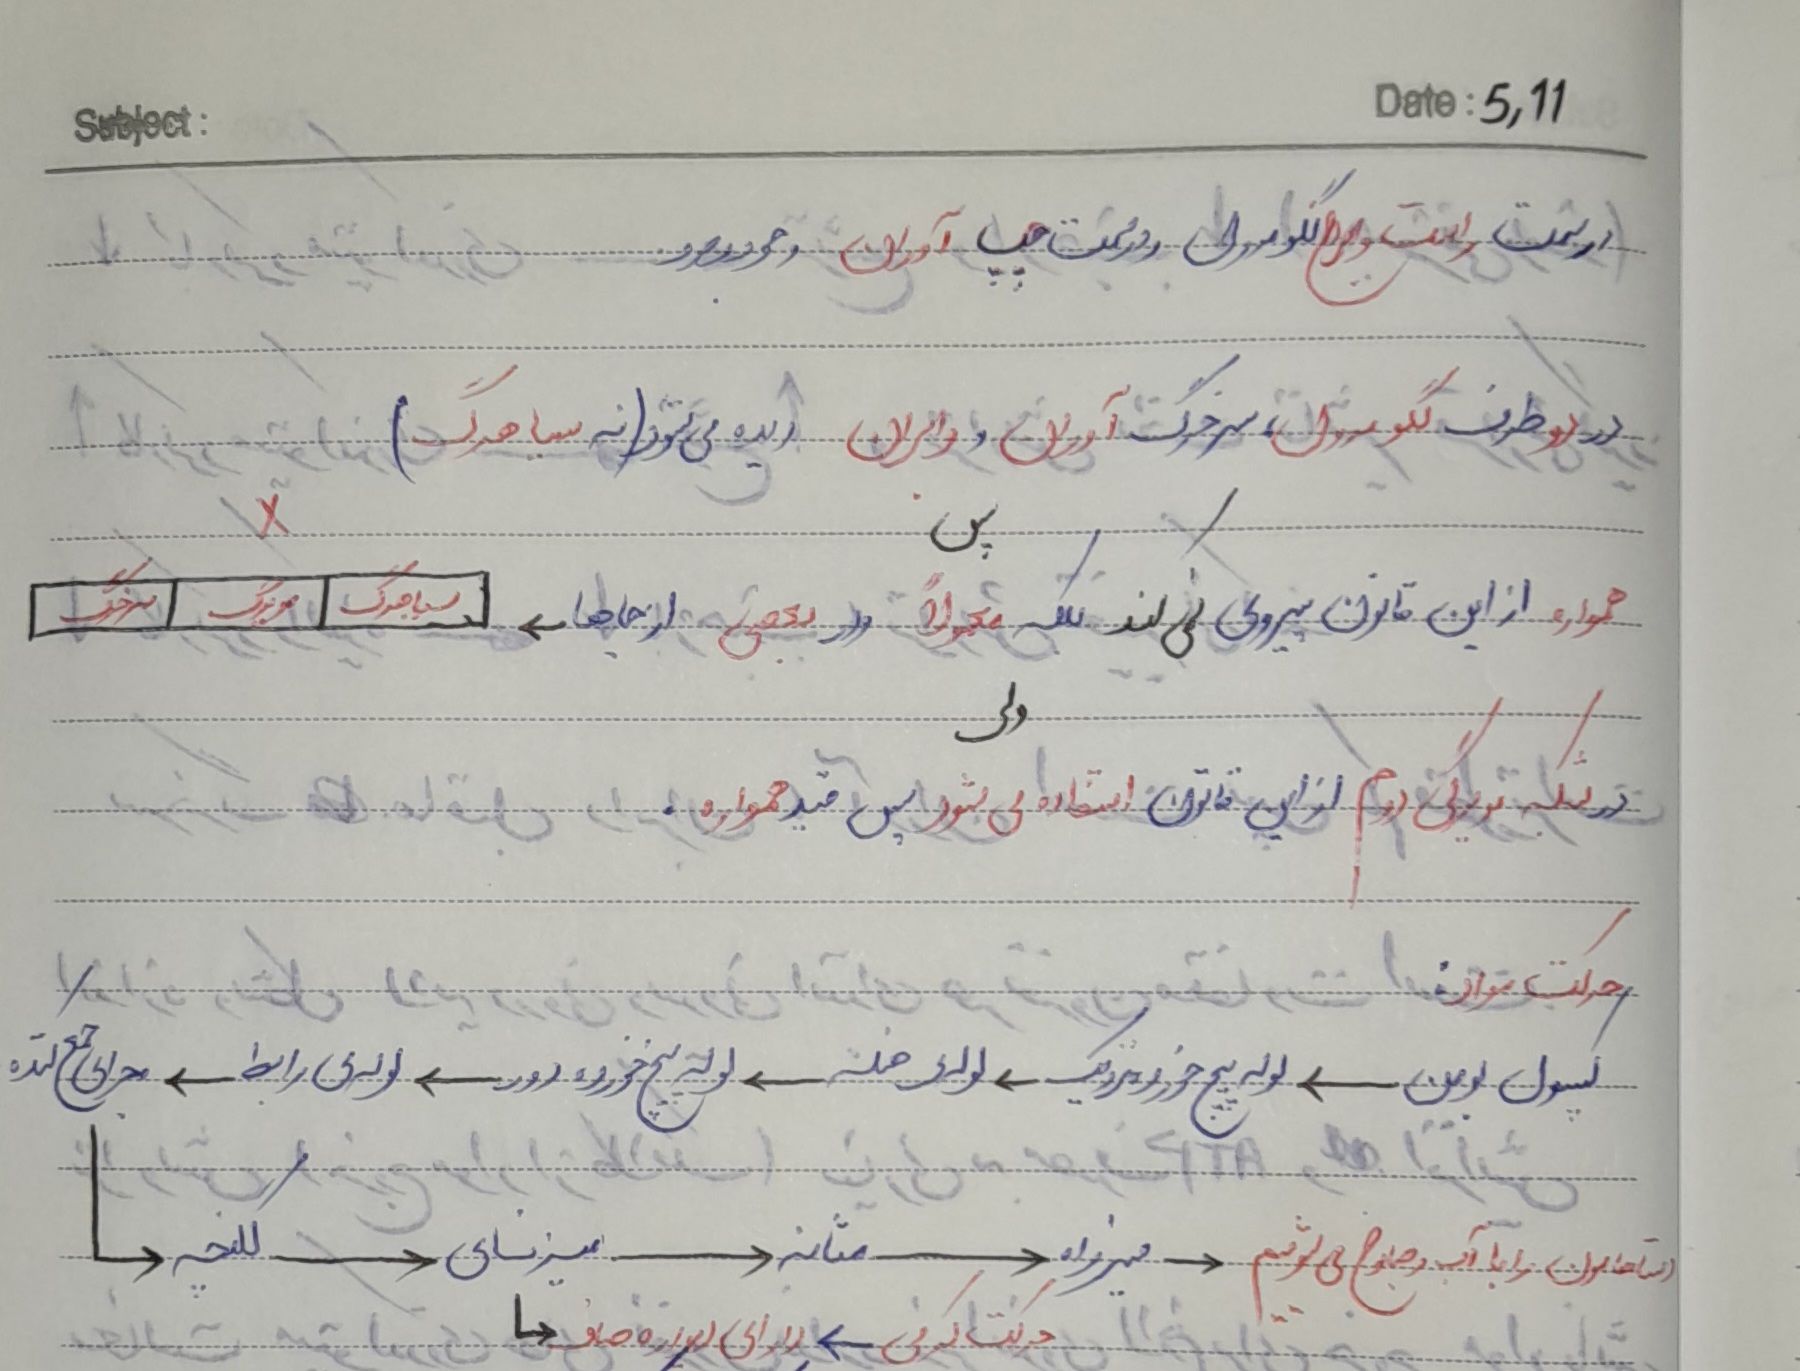 Subject: Date: 5,11
در سمت راست وابران گلومرول و در سمت چپ آوران وجود دارد.
در دو طرف گلومرول، سرخرگ آوران و وابران دیده می‌شود (نه سیاهرگ)
پس X
همواره از این قانون پیروی نمی‌کند بلکه معمولاً و در بعضی از جاها ← سیاهرگ مویرگ سرخرگ
ولی
در شبکه مویرگی دوم از این قانون استفاده می‌شود پس قید همواره.
حرکت مواد:
کپسول بومن ← لوله پیچ خورده نزدیک ← لوله‌ی هنله ← لوله پیچ خورده دور ← لوله‌ی رابط ← مجرای جمع کننده
→ لگنچه → میزنای → مثانه → میزراه → دستهامون را با آب و صابون می‌شوییم
دارای دیواره صاف ← حرکت کرمی